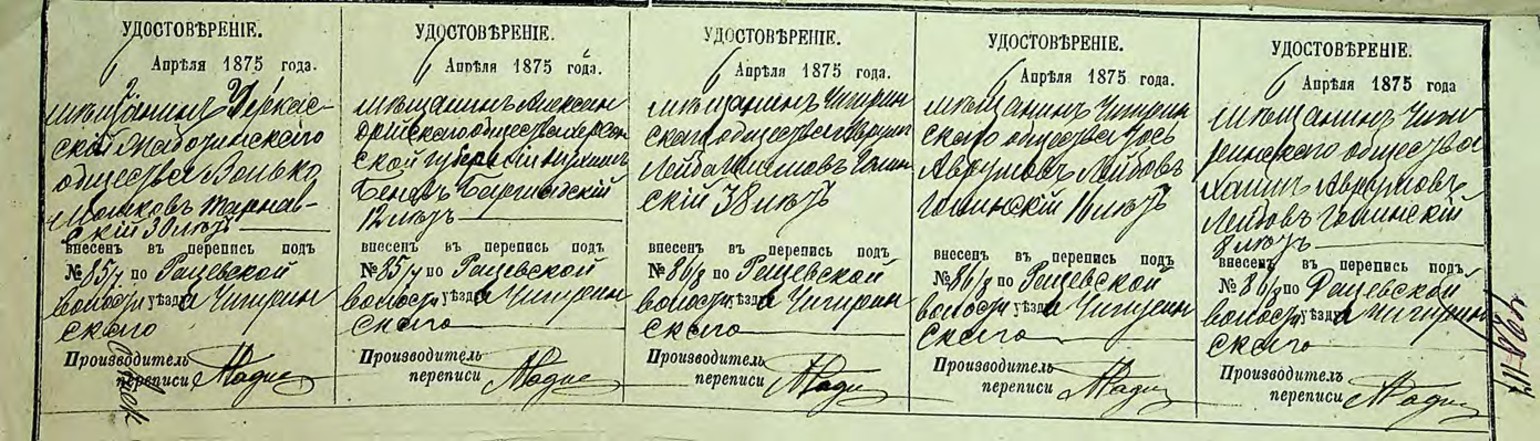 УДОСТОВѢРЕНІЕ.
6 Апрѣля 1875 года.
мѣщанинъ Черкас-
ской
общества
Мошковъ Тарнав-
скій 30 лѣтъ
внесенъ въ перепись подъ
№ 85/7 по Рацевской
волости уѣзда Чигирин
скаго
Производитель
переписи
УДОСТОВѢРЕНІЕ.
6 Апрѣля 1875 года.
мѣщанинъ Алексан
дрійскаго общества Херсон
ской губерніи
12 лѣтъ
внесенъ въ перепись подъ
№ 85/7 по Рацевской
волости уѣзда Чигирин
скаго
Производитель
переписи
УДОСТОВѢРЕНІЕ.
6 Апрѣля 1875 года.
мѣщанинъ Чигирин
скаго общества Аврумъ
Лейба
скій 38 лѣтъ
внесенъ въ перепись подъ
№ 86/8 по Рацевской
волости уѣзда Чигирин
скаго
Производитель
переписи
УДОСТОВѢРЕНІЕ.
6 Апрѣля 1875 года.
мѣщанинъ Чигирин
скаго общества Іось
Аврумовъ Лейбовъ
16 лѣтъ
внесенъ въ перепись подъ
№ 86/8 по Рацевской
волости уѣзда Чигирин
скаго
Производитель
переписи
УДОСТОВѢРЕНІЕ.
6 Апрѣля 1875 года
мѣщанинъ Чиги
ринскаго общества
Хаимъ Аврумовъ
Лейбовъ
8 лѣтъ
внесенъ въ перепись подъ
№ 86/8 по Рацевской
волости уѣзда Чигирин
скаго
Производитель
переписи